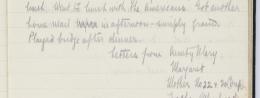 lunch. Went to lunch with the Americans. Got another
home mail in afternoon - simply grand.
Played bridge after dinner.
Letters from Auntie Mary.
Margaret
Mother No 22 &